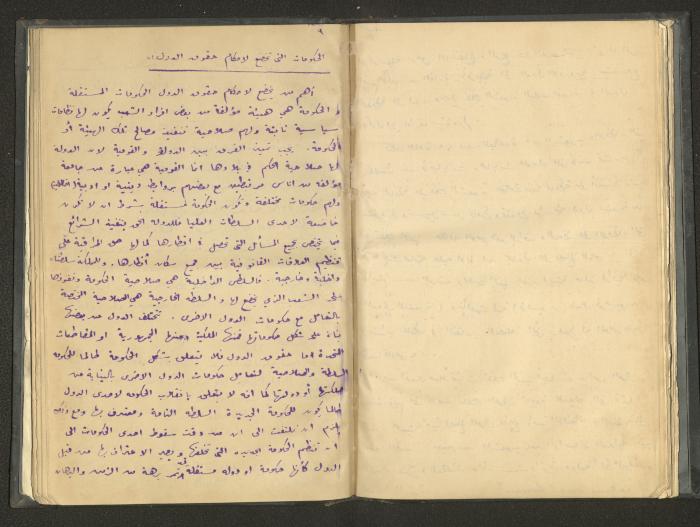 ٩
الحكومات التي تخضع لاحكام حقوق الدول
أهم من يخضع لاحكام حقوق الدول الحكومات المستقلة
الحكومة هي هيئة مؤلفة من بعض افراد الشعب يكون لها نظامات
سياسية ثابتة ولهم صلاحية تنفيذ مصالح تلك الهيئة أو
الحكومة. يجب تمييز الفرق بين الدولة والقومية لان الدولة
لها صلاحية الحكم في بلادها اما القومية هي عبارة عن جامعة
مؤلفة من اناس مرتبطين مع بعضهم بروابط دينية او ادبية
ولهم حكومات مختلفة وتكون الحكومة مستقلة بشرط ان لا تكون
خاضعة لاحدى السلطات العليا فللدولة الحق بتنفيذ الشرائع
بما يختص بجميع المسائل التي تحصل في اقطارها كما لها حق المراقبة على
تنظيم العلاقات القانونية بين جميع سكان أقطارها. وللملكة سلطتان
داخلية وخارجية. فالسلطة الداخلية هي صلاحية الحكومة ونفوذها
على الشعب الذي يخضع لها والسلطة الخارجية هي الصلاحية
بالتعامل مع حكومات الدول الاخرى. تختلف الدول عن بعضها
بناء على شكل حكوماتها فمنها الملكية ومنها الجمهورية او المقاطعات
المتحدة اما حقوق الدول فلا تتعلق بشكل الحكومة طالما للحكومة
السلطة والصلاحية لتعامل حكومات الدول الاخرى بالنيابة عن
مملكتها أو دولتها كما انه لا يتعلق بانقلاب الحكومه لاحدى الدول
طالما يكون للحكومة الجديدة السلطه التامة ومعترف بها ومع ذلك
يلزم ان نلتفت الى ان من وقت سقوط احدى الحكومات الى
ان تنظم الحكومة الجديده التي تخلفها ويجب الاعتراف بها من قبل
الدول كأنها حكومة او دوله مستقلة تمر برهة من الزمن